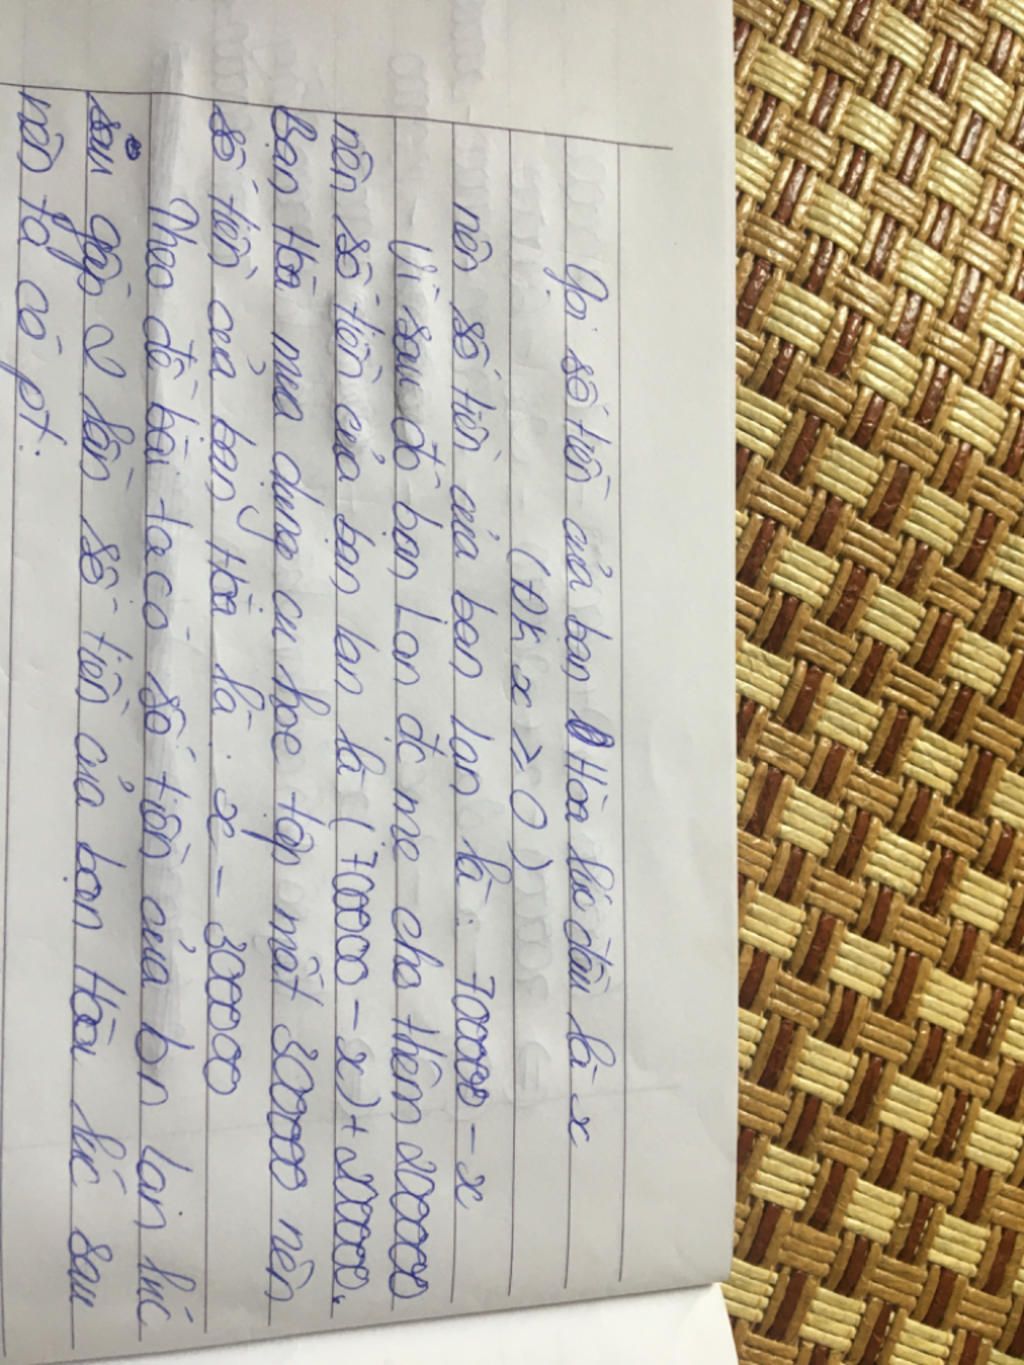 Gọi số tiền của bạn Hòa lúc đầu là x
(Đk x ≥ 0)
nên số tiền của bạn lan là: 70000 - x
Vì sau đó bạn Lan đc mẹ cho thêm 20000
nên số tiền của bạn lan là (70000 - x) + 20000.
Bạn Hòa mua dụng cụ học tập mất 30000 nên
số tiền của bạn Hòa là : x - 30000
Theo đề bài ta có số tiền của bn lan lúc
sau gấp 2 lần số tiền của bạn Hòa lúc sau
nên ta có pt: